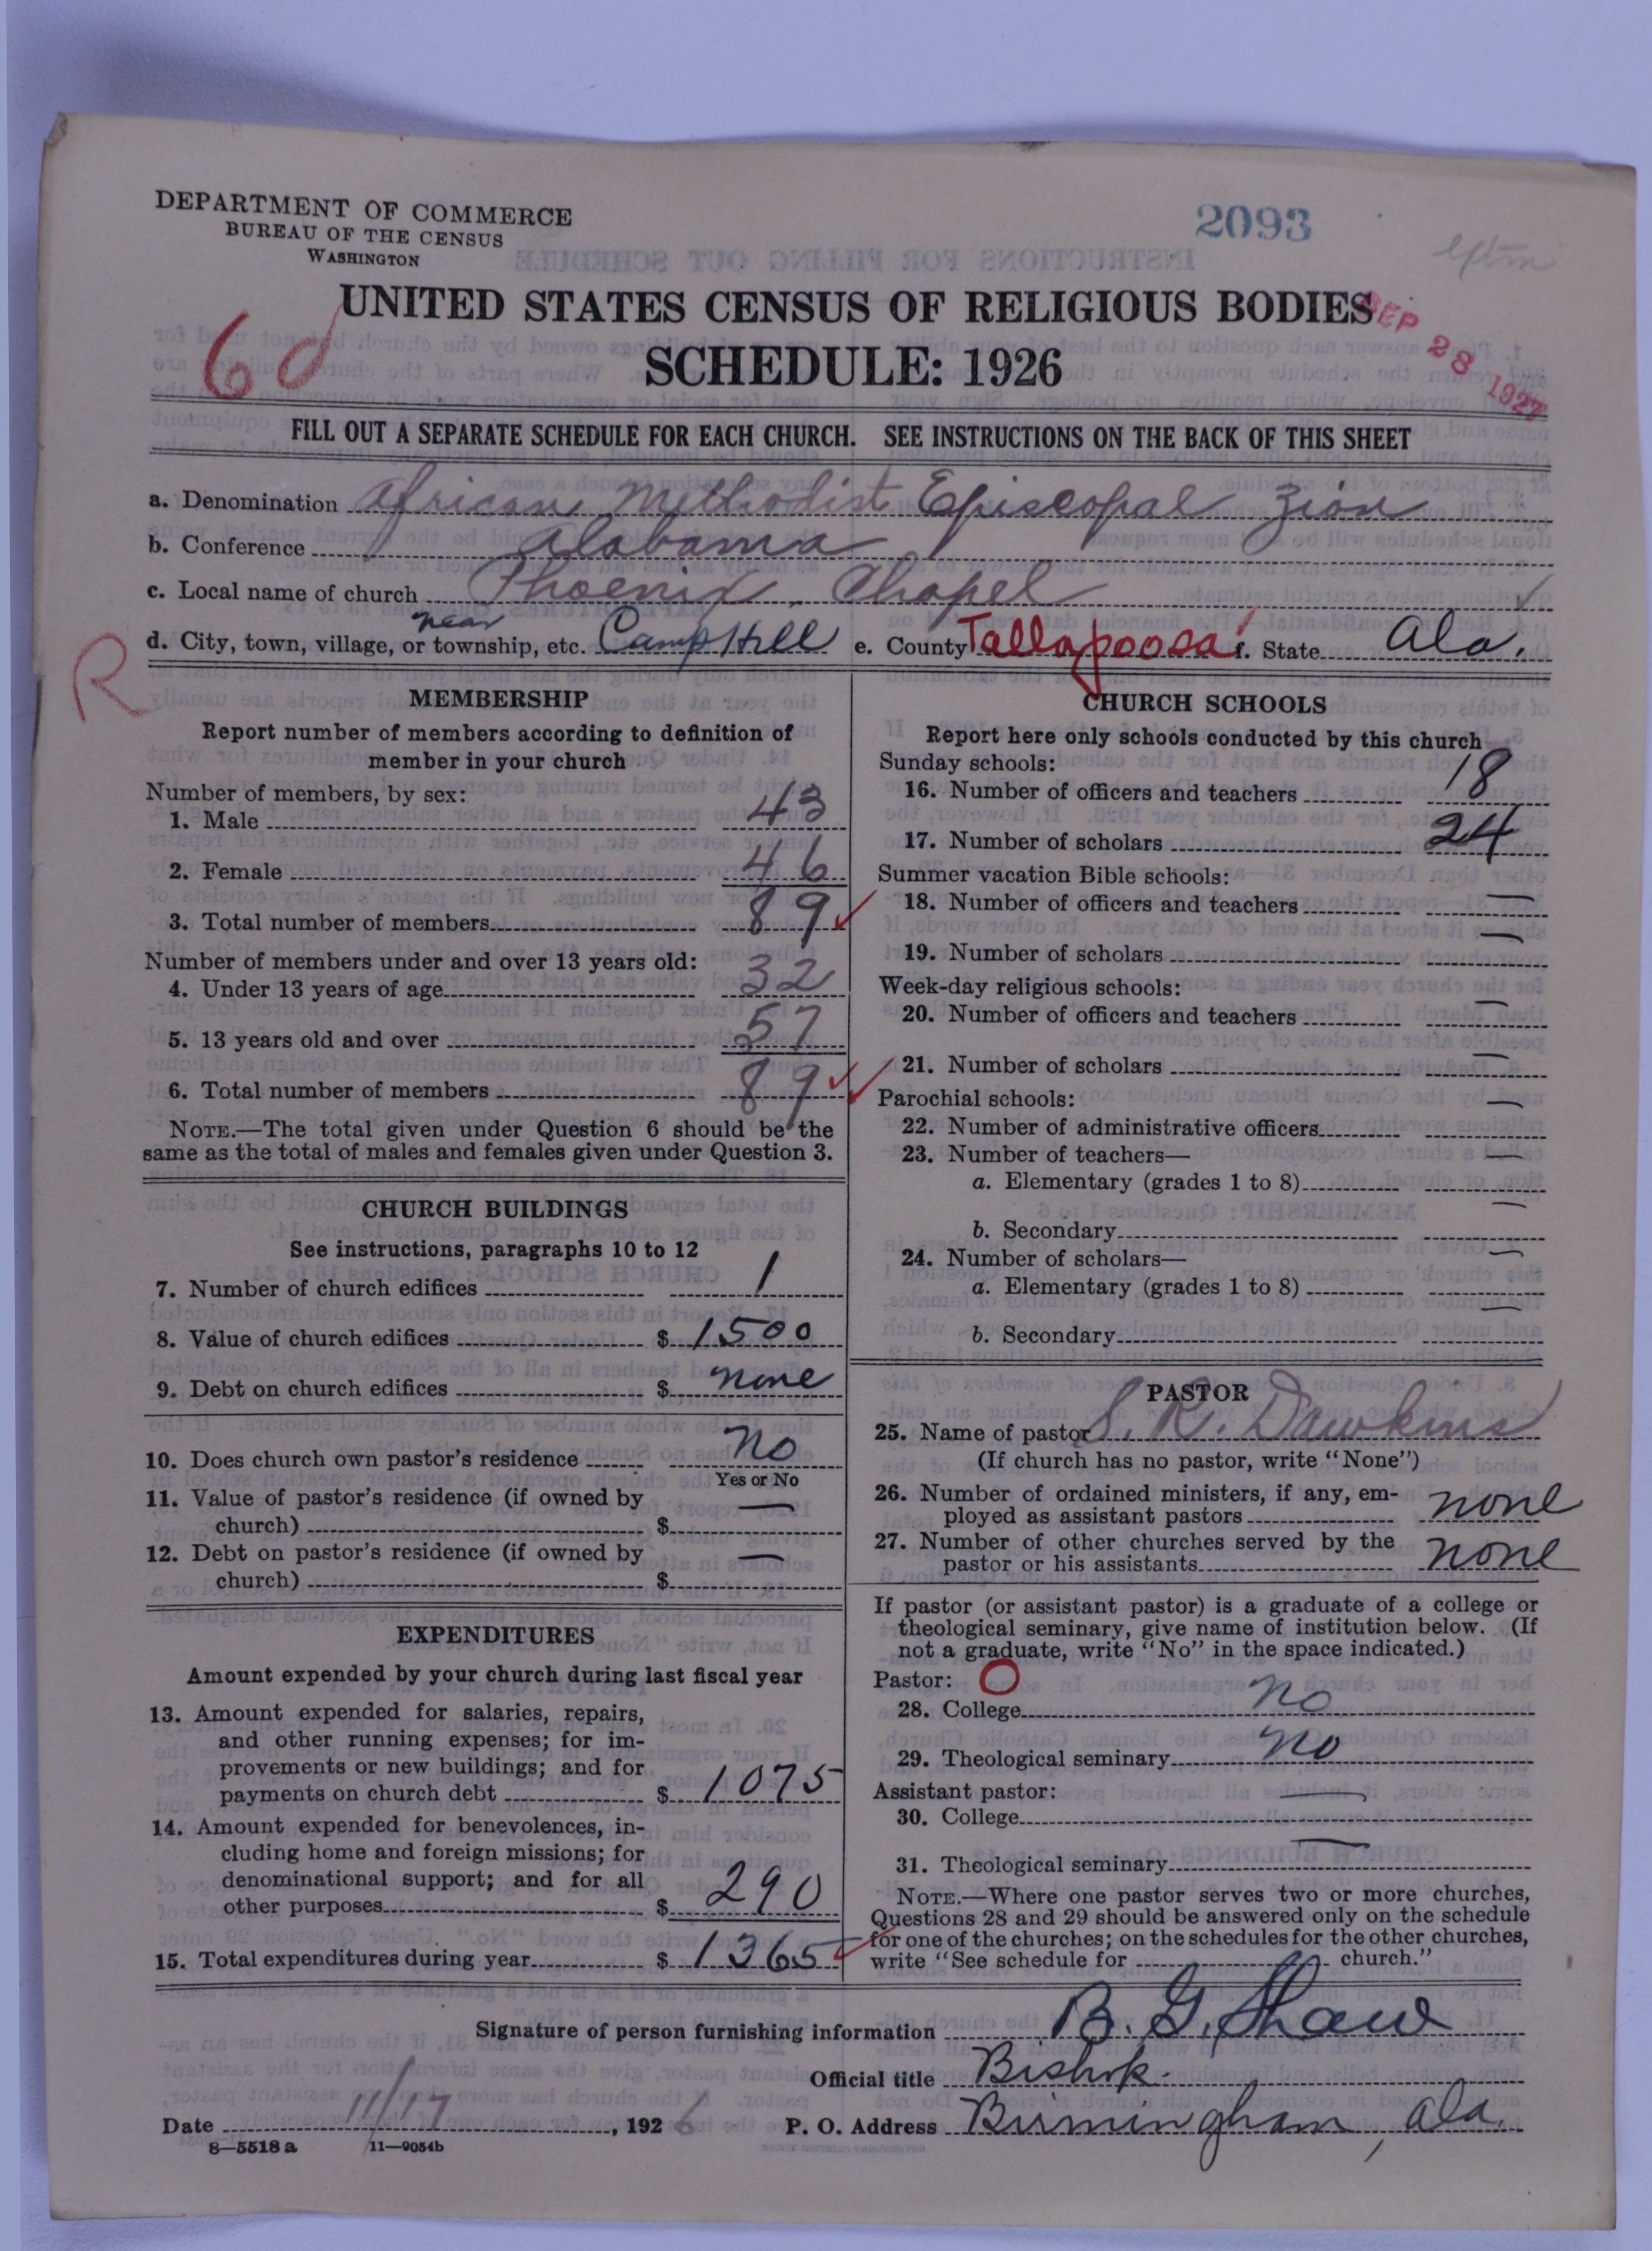 DEPARTMENT OF COMMERCE
BUREAU OF THE CENSUS
WASHINGTON
2093
60
UNITED STATES CENSUS OF RELIGIOUS BODIES
SCHEDULE: 1926
SEP 28 1927
FILL OUT A SEPARATE SCHEDULE FOR EACH CHURCH. SEE INSTRUCTIONS ON THE BACK OF THIS SHEET
a. Denomination African Methodist Episcopal Zion
b. Conference Alabama
c. Local name of church Phoenix Chapel
d. City, town, village, or township, etc. near Camp Hill e. County Tallapoosa f. State Ala.
R
MEMBERSHIP
Report number of members according to definition of
member in your church
Number of members, by sex:
1. Male 43
2. Female 46
3. Total number of members 89
Number of members under and over 13 years old:
4. Under 13 years of age 32
5. 13 years old and over 57
6. Total number of members 89
NOTE.—The total given under Question 6 should be the
same as the total of males and females given under Question 3.
CHURCH BUILDINGS
See instructions, paragraphs 10 to 12
7. Number of church edifices 1
8. Value of church edifices $ 1500
9. Debt on church edifices $ none
10. Does church own pastor's residence No
Yes or No
11. Value of pastor's residence (if owned by
church) $ —
12. Debt on pastor's residence (if owned by
church) $ —
EXPENDITURES
Amount expended by your church during last fiscal year
13. Amount expended for salaries, repairs,
and other running expenses; for im-
provements or new buildings; and for
payments on church debt $ 1075
14. Amount expended for benevolences, in-
cluding home and foreign missions; for
denominational support; and for all
other purposes $ 290
15. Total expenditures during year $ 1365
CHURCH SCHOOLS
Report here only schools conducted by this church
Sunday schools:
16. Number of officers and teachers 18
17. Number of scholars 24
Summer vacation Bible schools:
18. Number of officers and teachers —
19. Number of scholars —
Week-day religious schools:
20. Number of officers and teachers —
21. Number of scholars —
Parochial schools:
22. Number of administrative officers —
23. Number of teachers—
a. Elementary (grades 1 to 8) —
b. Secondary —
24. Number of scholars—
a. Elementary (grades 1 to 8) —
b. Secondary —
PASTOR
25. Name of pastor S. R. Dawkins
(If church has no pastor, write "None")
26. Number of ordained ministers, if any, em-
ployed as assistant pastors none
27. Number of other churches served by the
pastor or his assistants none
If pastor (or assistant pastor) is a graduate of a college or
theological seminary, give name of institution below. (If
not a graduate, write "No" in the space indicated.)
Pastor: O
28. College no
29. Theological seminary no
Assistant pastor:
30. College —
31. Theological seminary —
NOTE.—Where one pastor serves two or more churches,
Questions 28 and 29 should be answered only on the schedule
for one of the churches; on the schedules for the other churches,
write "See schedule for church."
Signature of person furnishing information B. G. Shaw
Official title Bishop.
Date 11/17, 1926 P. O. Address Birmingham, Ala.
8—5518a 11—9054b